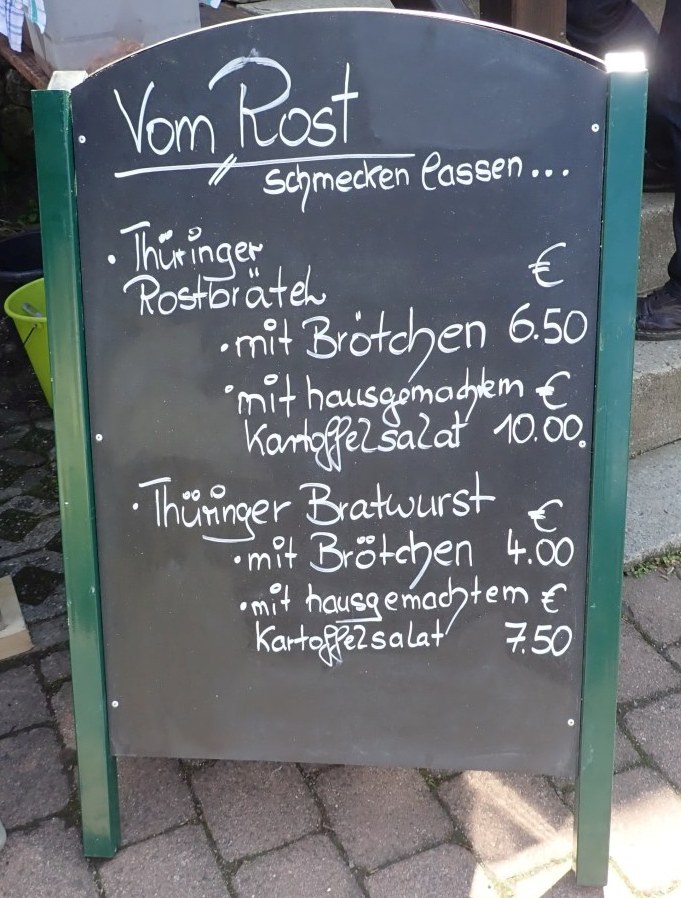 Vom Rost
schmecken lassen...
• Thüringer €
Rostbrätel
• mit Brötchen 6.50
• mit hausgemachtem €
Kartoffelsalat 10.00
• Thüringer Bratwurst €
• mit Brötchen 4.00
• mit hausgemachtem €
Kartoffelsalat 7.50